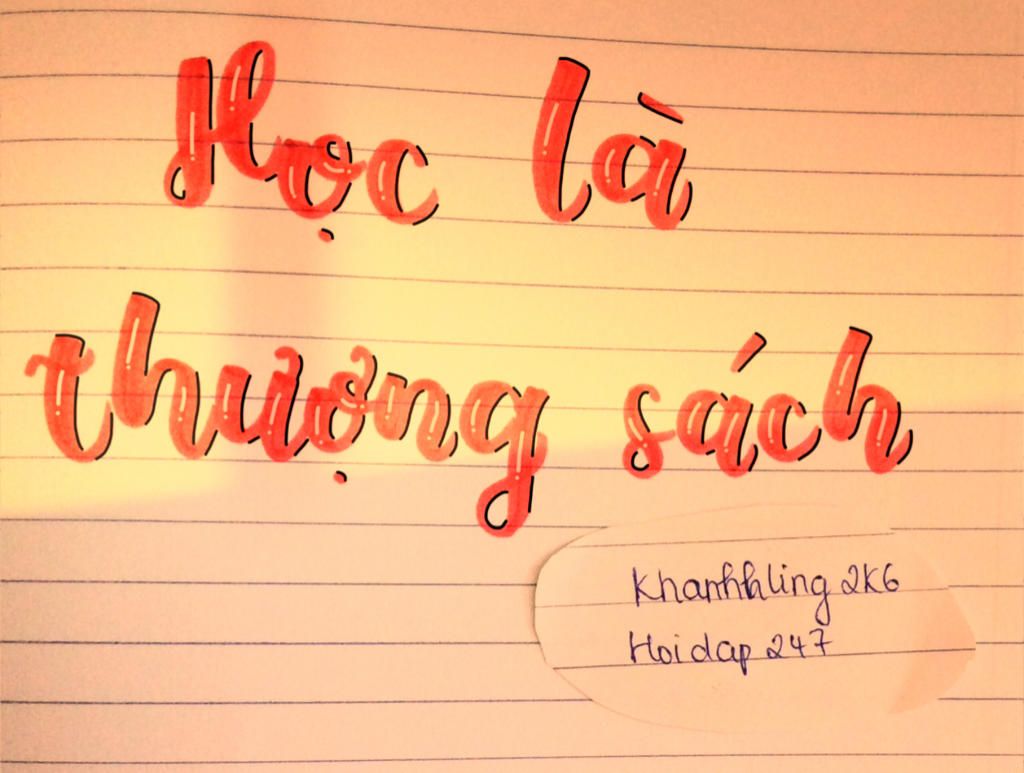 Học là
thượng sách
Khanhhling 2K6
Hoidap 247